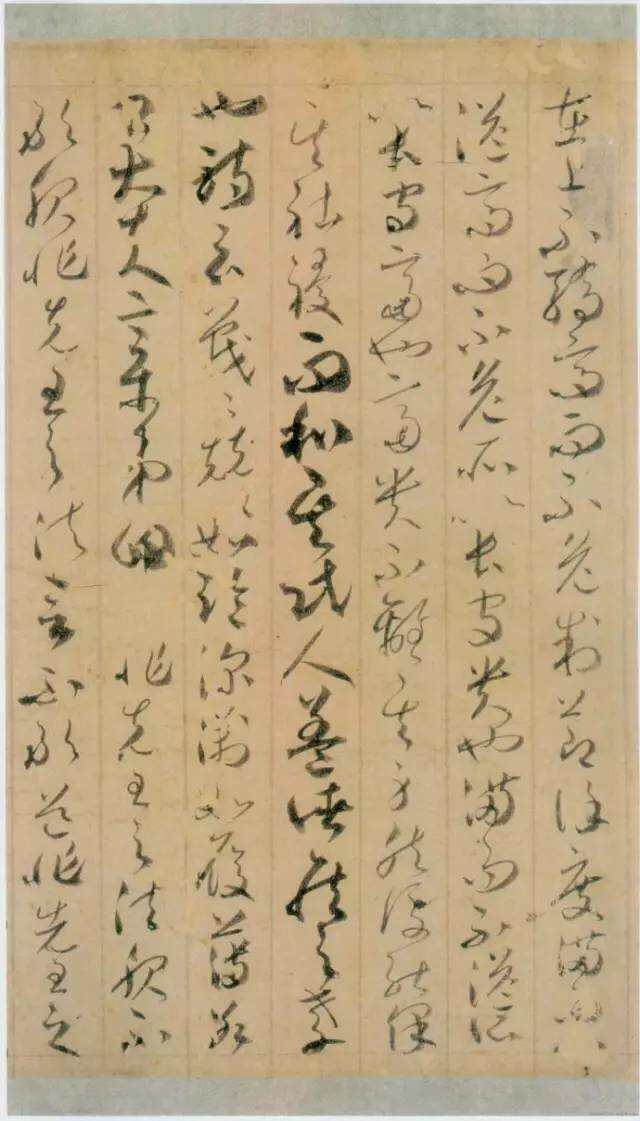 在上不驕高而不危制節謹度滿而不
溢高而不危所以長守貴也滿而不溢所
以長守富也富貴不離其身然後能保
其社稷而和其民人蓋諸侯之孝
也詩云戰〻兢〻如臨深淵如履薄冰
大夫章第四 非先王之法服不
敢服非先王之法言不敢道非先王之